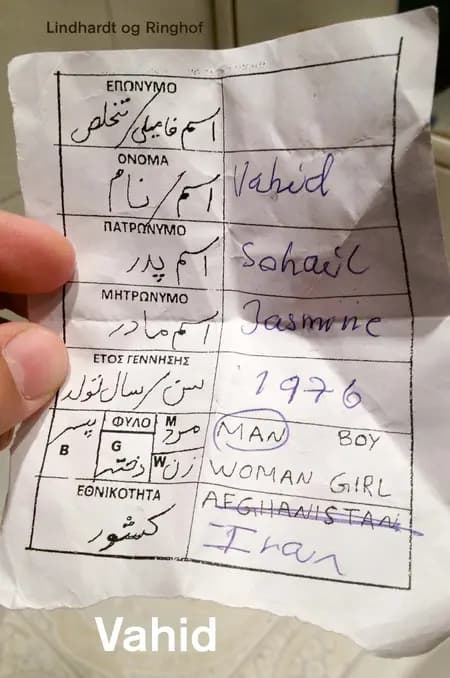 Lindhardt og Ringhof
ΕΠΩΝΥΜΟ
اسم فامیلی / تخلص
ΟΝΟΜΑ
اسم / نام
Vahid
ΠΑΤΡΩΝΥΜΟ
اسم پدر
Sohail
ΜΗΤΡΩΝΥΜΟ
اسم مادر
Jasmine
ΕΤΟΣ ΓΕΝΝΗΣΗΣ
سن / سال تولد
1976
پسر ΦΥΛΟ M مرد MAN BOY
B G دختر W زن WOMAN GIRL
ΕΘΝΙΚΟΤΗΤΑ
کشور
AFGHANISTAN
Iran
Vahid